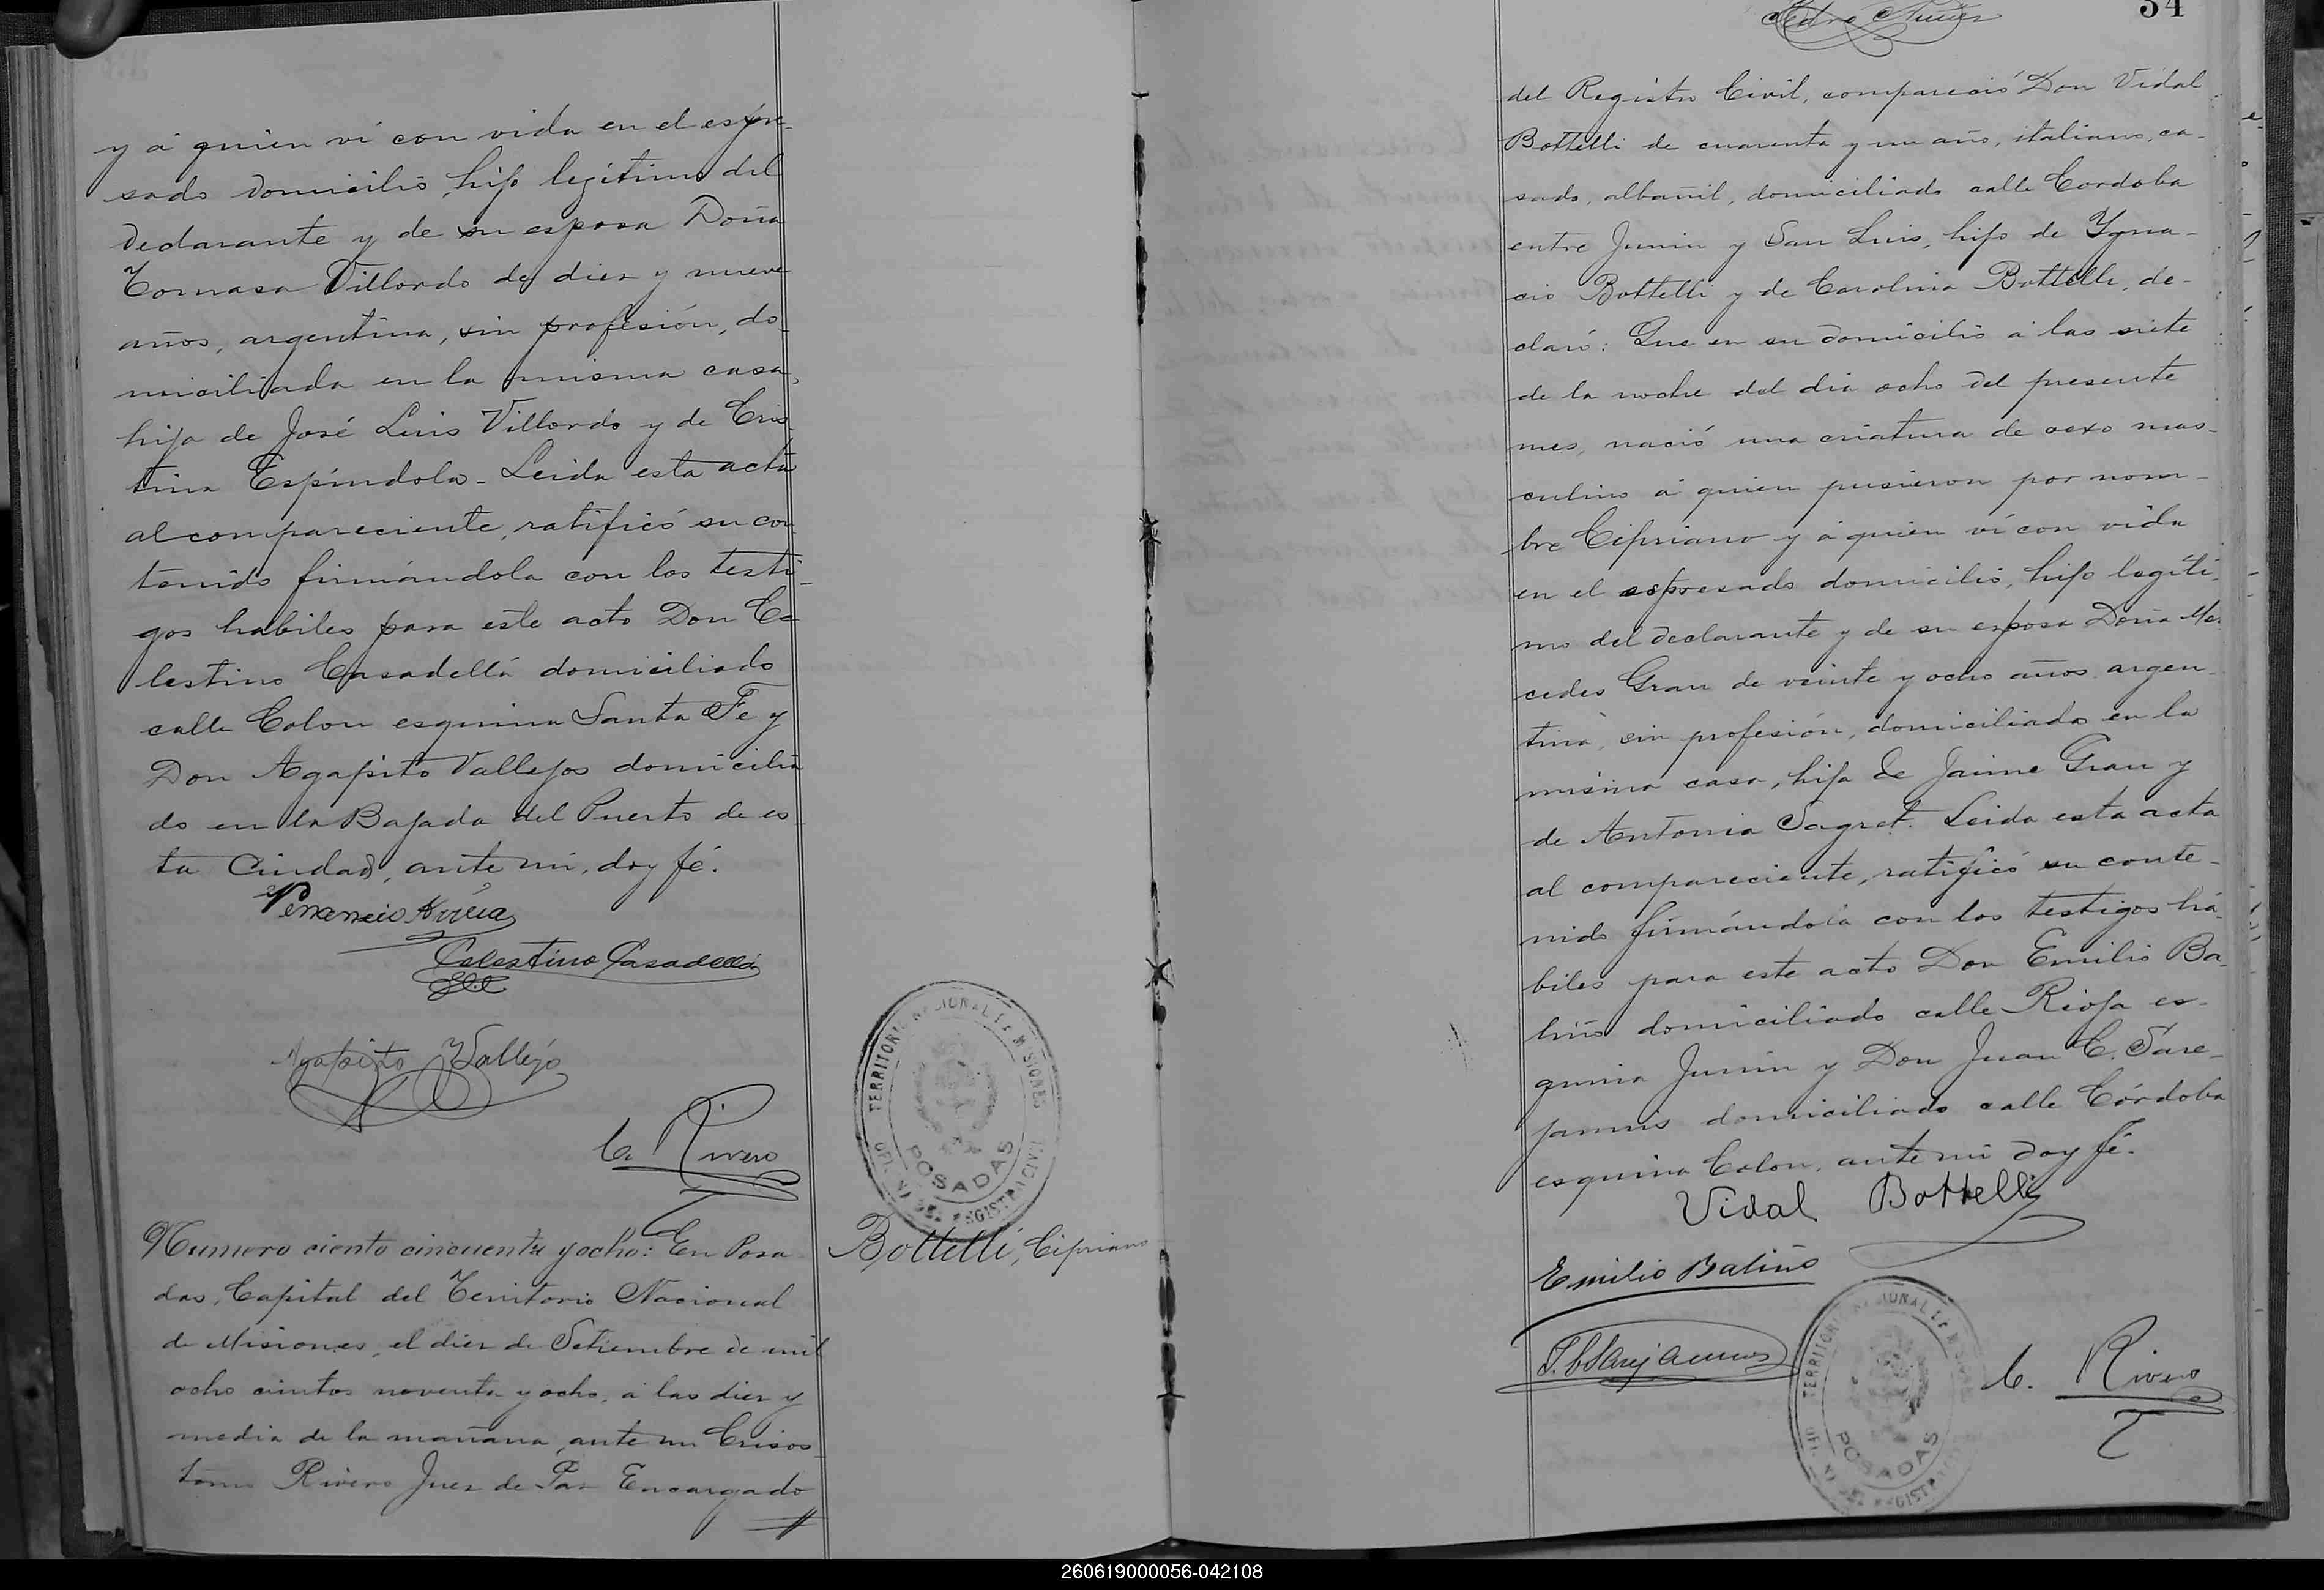 y á quien ví con vida en el espre-
sado domicilio, hijo legítimo del
declarante y de su esposa Doña
Tomasa Villordo de diez y nueve
años, argentina, sin profesión, do-
miciliada en la misma casa,
hija de José Luis Villordo y de Cris-
tina Espíndola - Leida esta acta
al compareciente, ratificó su con-
tenido firmándola con los testi-
gos habiles para este acto Don Ce-
lestino Casadellá domiciliado
calle Colon esquina Santa Fe y
Don Agapito Vallejos domicilia
do en la Bajada del Puerto de es-
ta Ciudad, ante mí, doy fé.
Celestino Casadellá
Agapito Vallejo
C. Rivero
TERRITORIO NACIONAL DE MISIONES
POSADAS
Numero ciento cincuenta y ocho: En Posa-
das, Capital del Territorio Nacional
de Misiones, el diez de Setiembre de mil
ocho cientos noventa y ocho, á las diez y
media de la mañana, ante mi Crisos-
tomo Rivero Juez de Paz Encargado
Bottelli, Cipriano
34
del Registro Civil, compareció Don Vidal
Bottelli de cuarenta y un año, italiano, ca-
sado, albañil, domiciliado calle Cordoba
entre Junin y San Luis, hijo de Ygna-
cio Bottelli y de Carolina Bottelli, de-
claró: Que en su domicilio á las siete
de la noche del dia ocho del presente
mes, nació una criatura de sexo mas-
culino á quien pusieron por nom-
bre Cipriano y á quien ví con vida
en el espresado domicilio, hijo legíti-
mo del declarante y de su esposa Doña Mer
cedes Grau de veinte y ocho años argen-
tina, sin profesión, domiciliada en la
misma casa, hija de Jaime Grau y
de Antonia Sagret. Leida esta acta
al compareciente, ratificó su conte-
nido firmándola con los testigos há-
biles para este acto Don Emilio Ba-
liño domiciliado calle Rioja es-
quina Junin y Don Juan C. Sare-
jamis domiciliado calle Córdoba
esquina Colon, ante mi doy fé.
Vidal Bottelli
Emilio Baliño
C. Rivero
POSADAS
260619000056-042108